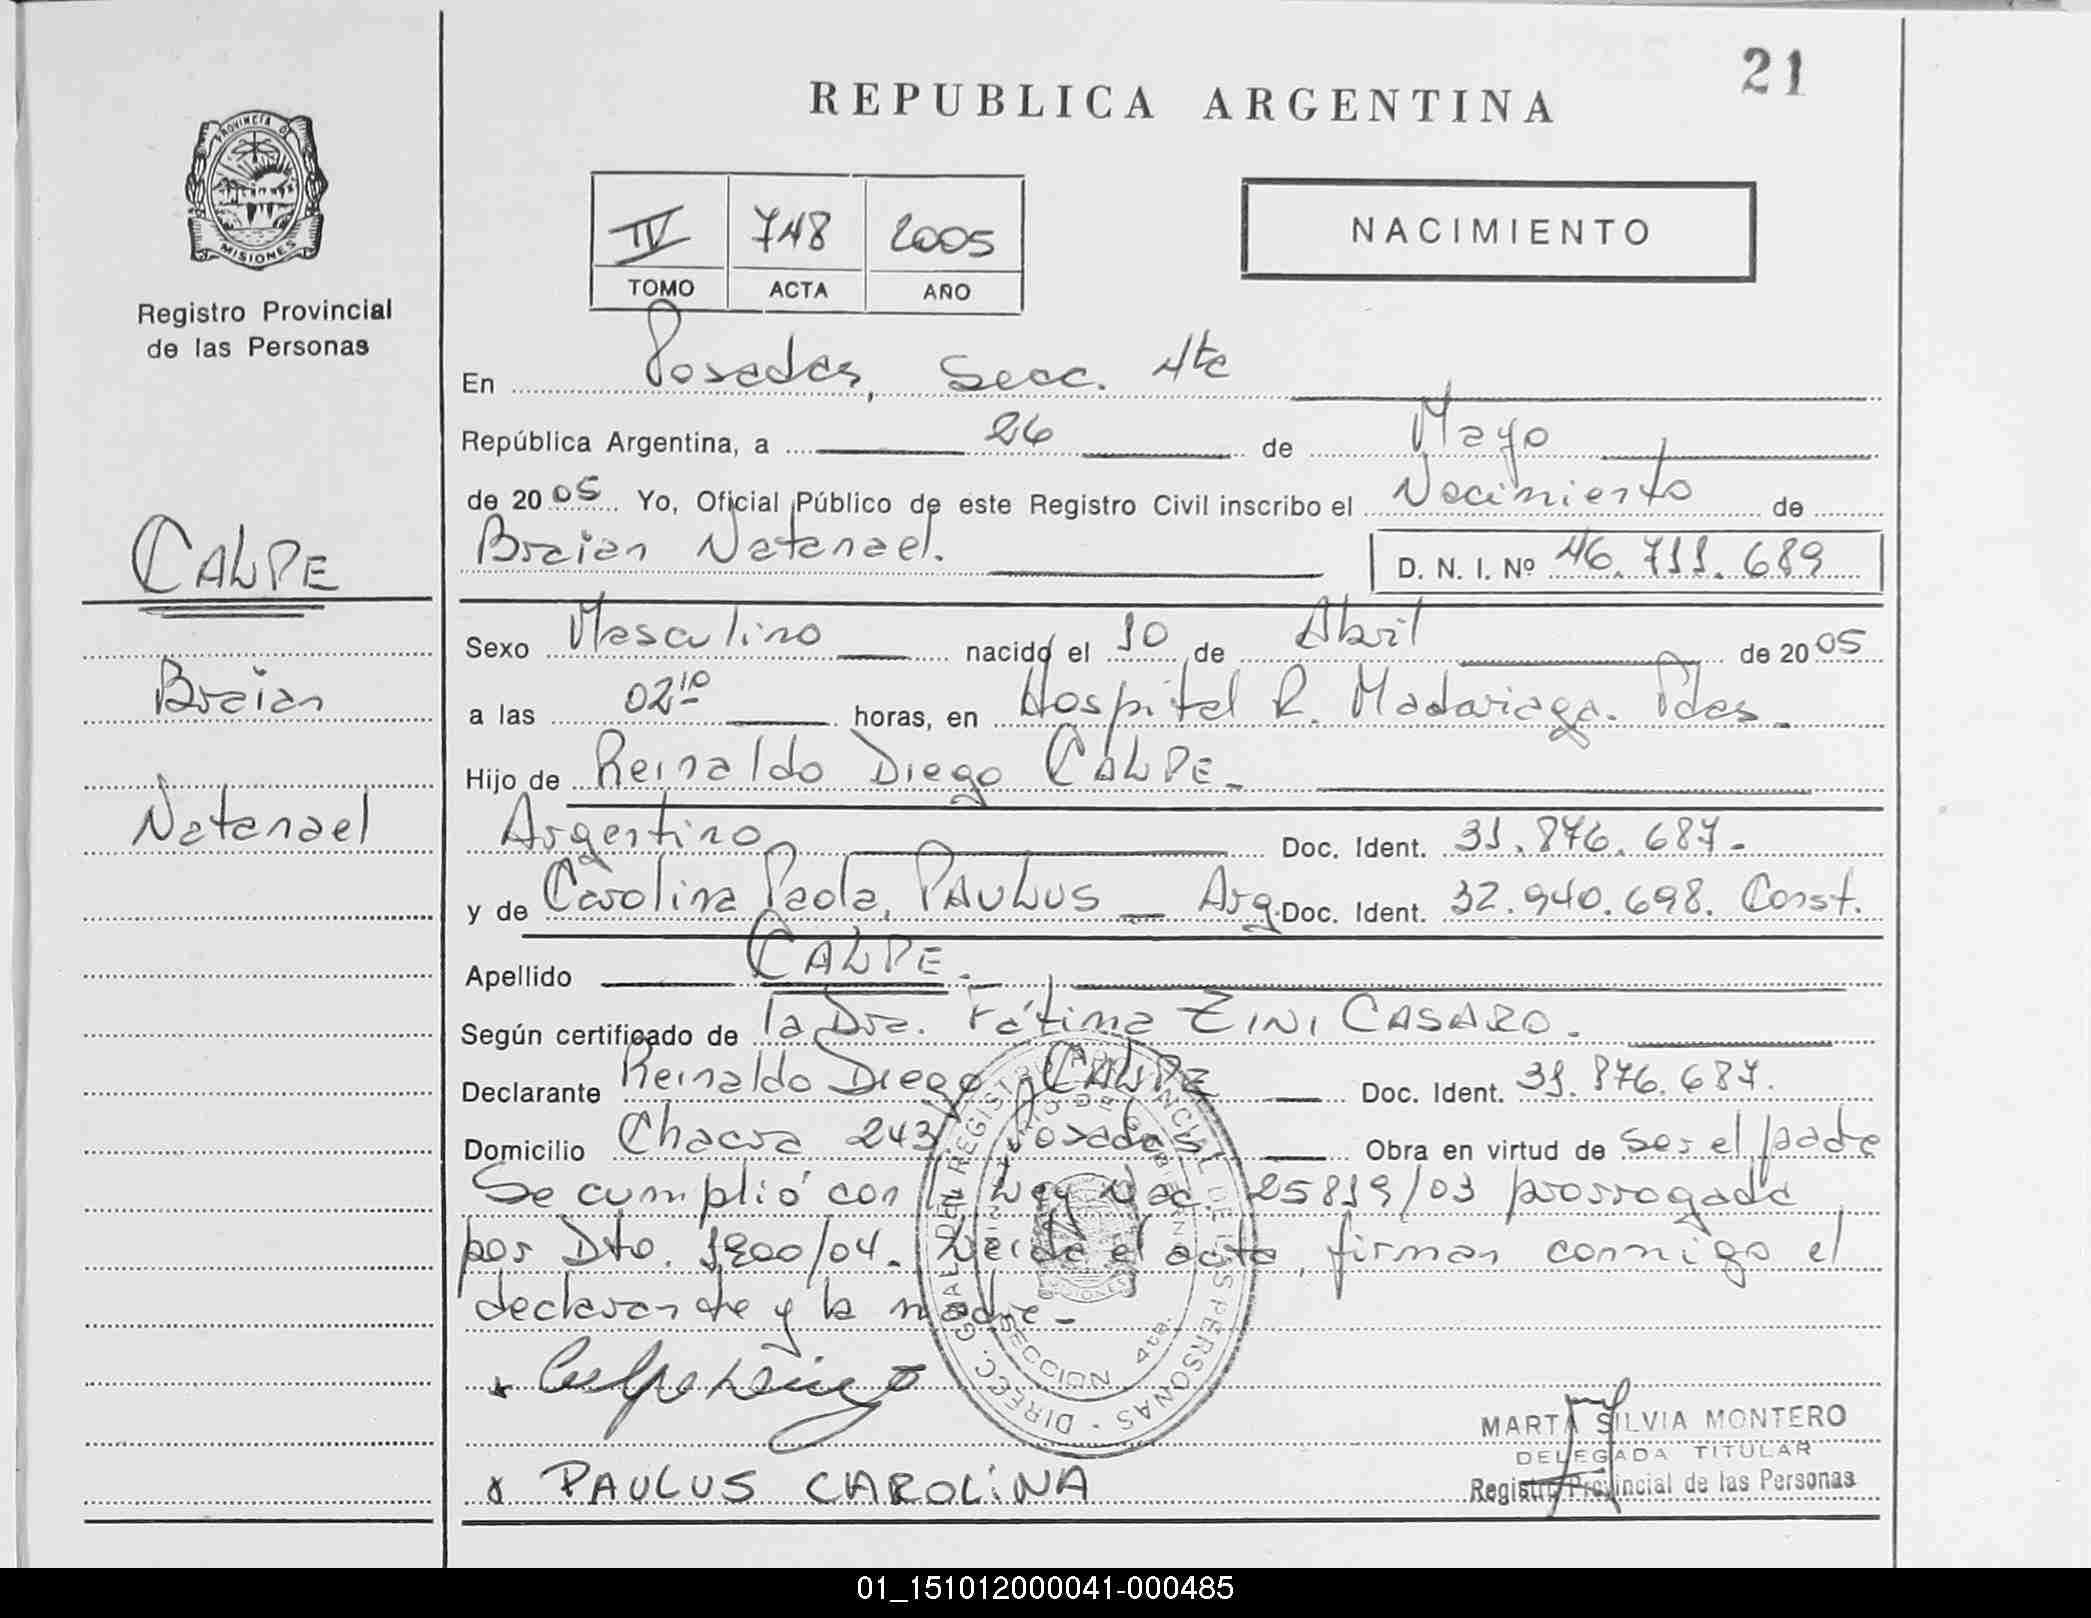 21
REPUBLICA ARGENTINA
PROVINCIA DE
MISIONES
Registro Provincial
de las Personas
IV 748 2005
TOMO ACTA AÑO
NACIMIENTO
En Posadas, Secc. 4ta
República Argentina, a 26 de Mayo
de 2005 Yo, Oficial Público de este Registro Civil inscribo el Nacimiento de
Braian Natanael.
D. N. I. Nº 46.711.689
CALPE
Braian
Natanael
Sexo Masculino nacido el 10 de Abril de 2005
a las 02 10 horas, en Hospital R. Madariaga. Pdas.
Hijo de Reinaldo Diego CALPE.
Argentino Doc. Ident. 31.876.687.
y de Carolina Paola, PAULUS Arg. Doc. Ident. 32.940.698. Const.
Apellido CALPE.
Según certificado de la Dra. Fátima ZINI CASARO.
Declarante Reinaldo Diego CALPE Doc. Ident. 31.876.687.
Domicilio Chacra 243, Posadas Obra en virtud de ser el padre
Se cumplió con Ley Nac. 25819/03 prorrogada
por Dto. 1900/04. Leída el acta, firman conmigo el
declarante y la madre.
DIRECC. GRAL. DEL REGISTRO PROVINCIAL DE LAS PERSONAS
SECCION 4ta.
x PAULUS CAROLINA
MARTA SILVIA MONTERO
DELEGADA TITULAR
Registro Provincial de las Personas
01_151012000041-000485